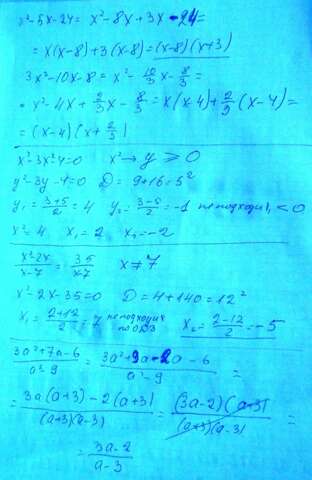 x²-5x-24= x²-8x+3x-24=
= x(x-8)+3(x-8)=(x-8)(x+3)
3x²-10x-8= x²-10/3x-8/3=
= x²-4x+2/3x-8/3=x(x-4)+2/3(x-4)=
=(x-4)(x+2/3)
x⁴-3x²-4=0 x²→y≥0
y²-3y-4=0 D=9+16=5²
y₁=(3+5)/2=4 y₂=(3-5)/2=-1 не подходит, <0
x²=4 x₁=2 x₂=-2
(x²-2x)/(x-7)=35/(x-7) x≠7
x²-2x-35=0 D=4+140=12²
x₁=(2+12)/2=7 не подходит по ОДЗ x₂=(2-12)/2=-5
(3a²+7a-6)/(a²-9)=(3a²+9a-2a-6)/(a²-9)=
=(3a(a+3)-2(a+3))/((a+3)(a-3))=((3a-2)(a+3))/((a+3)(a-3))=
=(3a-2)/(a-3)